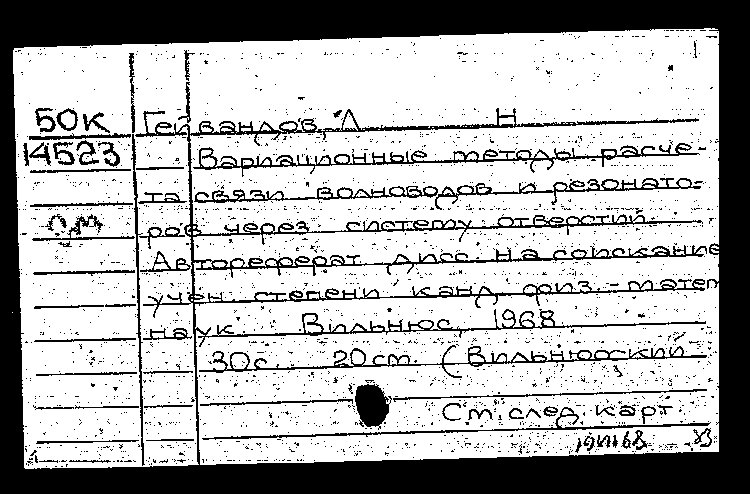 50К Гейвандов, Л Н
14523 Вариационные методы расче-
та связи волноводов и резонато-
ров через систему отверстий.
Автореферат дисс. на соискание
учен. степени канд. физ.-матем
наук. Вильнюс, 1968
30с. 20см. (Вильнюсский
См. след. карт.